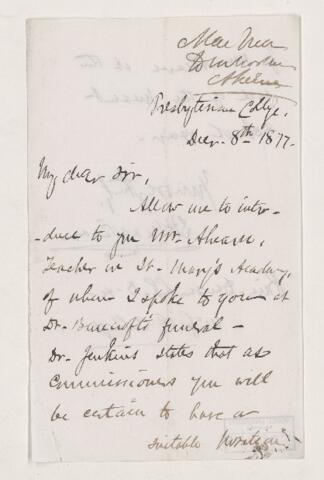 Presbyterian College,
Decr. 8th 1877.
My dear Sir,
Allow me to intro-
-duce to you Mr. Ahearn,
Teacher in St. Mary's Academy,
of whom I spoke to you at
Dr. Bancroft's funeral -
Dr. Jenkins states that as
Commissioners you will
be certain to have a
suitable position